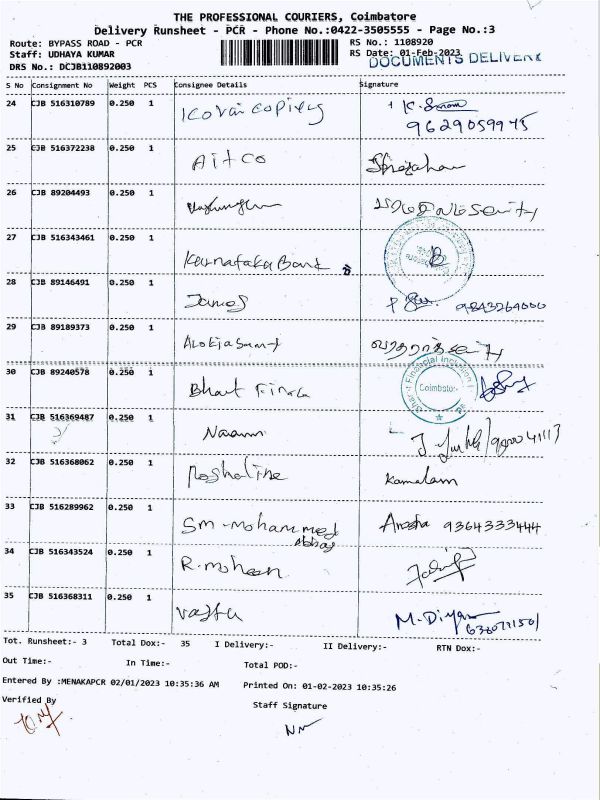 THE PROFESSIONAL COURIERS, Coimbatore
Delivery Runsheet - PCR - Phone No.:0422-3505555 - Page No.:3
Route: BYPASS ROAD - PCR RS No.: 1108920
Staff: UDHAYA KUMAR RS Date: 01-Feb-2023
DOCUMENTS DELIVERY
DRS No.: DCJB110892003
S No Consignment No Weight PCS Consignee Details Signature
24 CJB 516310789 0.250 1 Kovai copiers
9629059945
25 CJB 516372238 0.250 1 Aitco
26 CJB 89204493 0.250 1
27 CJB 516343461 0.250 1 Karnataka Bank
28 CJB 89146491 0.250 1 James 9843264000
29 CJB 89189373 0.250 1
30 CJB 89240578 0.250 1 Bharat
Financial Inclusion
Coimbatore
31 CJB 516369487 0.250 1
32 CJB 516368062 0.250 1 Roshaline Kamalam
33 CJB 516289962 0.250 1 Sm-mohammed 9364333444
34 CJB 516343524 0.250 1 R.moheen
35 CJB 516368311 0.250 1 M. Diya
Tot. Runsheet:- 3 Total Dox:- 35 I Delivery:- II Delivery:- RTN Dox:-
Out Time:- In Time:- Total POD:-
Entered By :MENAKAPCR 02/01/2023 10:35:36 AM Printed On: 01-02-2023 10:35:26
Verified By Staff Signature